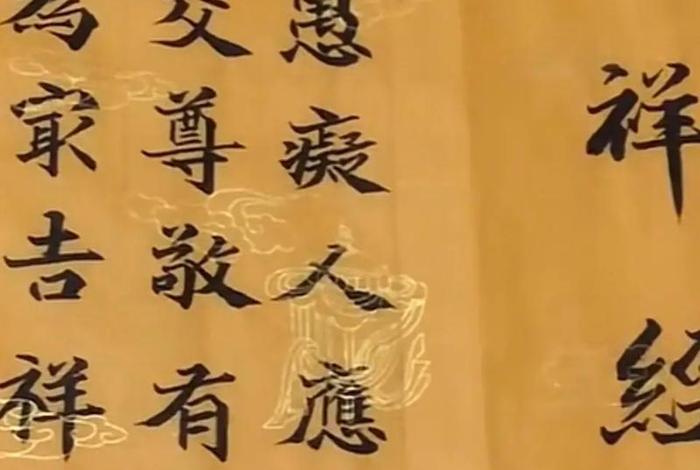 祥經
愚癡人應
交尊敬有
為㝡吉祥